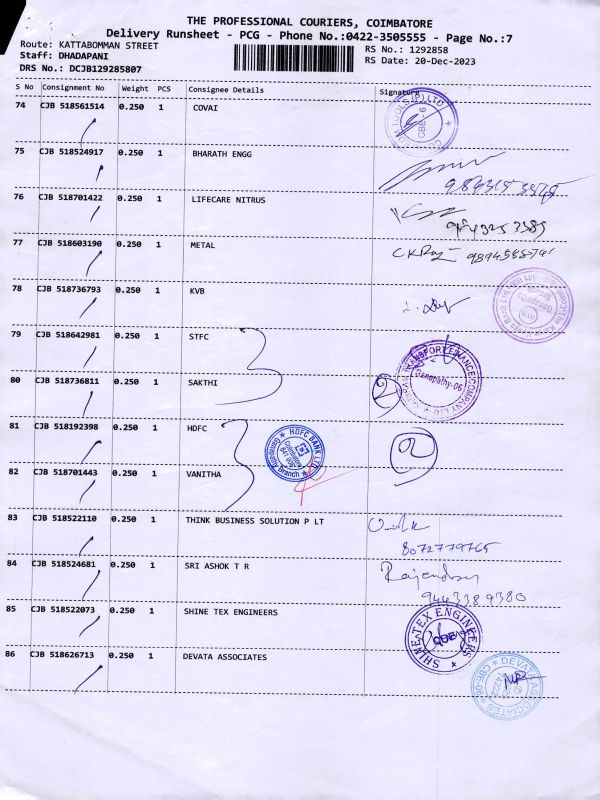 THE PROFESSIONAL COURIERS, COIMBATORE
Delivery Runsheet - PCG - Phone No.:0422-3505555 - Page No.:7
Route: KATTABOMMAN STREET RS No.: 1292858
Staff: DHADAPANI RS Date: 20-Dec-2023
DRS No.: DCJB129285807
S No Consignment No Weight PCS Consignee Details Signature
74 CJB 518561514 0.250 1 COVAI
75 CJB 518524917 0.250 1 BHARATH ENGG
76 CJB 518701422 0.250 1 LIFECARE NITRUS
77 CJB 518603190 0.250 1 METAL
78 CJB 518736793 0.250 1 KVB
79 CJB 518642981 0.250 1 STFC
Ganapathy-06
80 CJB 518736811 0.250 1 SAKTHI 2
81 CJB 518192398 0.250 1 HDFC
HDFC BANK LTD
Coimbatore
Branch
2
82 CJB 518701443 0.250 1 VANITHA
83 CJB 518522110 0.250 1 THINK BUSINESS SOLUTION P LT
8072779765
84 CJB 518524681 0.250 1 SRI ASHOK T R Rajendran
9443389380
85 CJB 518522073 0.250 1 SHINE TEX ENGINEERS
SHINE TEX ENGINEERS
86 CJB 518626713 0.250 1 DEVATA ASSOCIATES
DEVATA ASSOCIATES
CBE-06